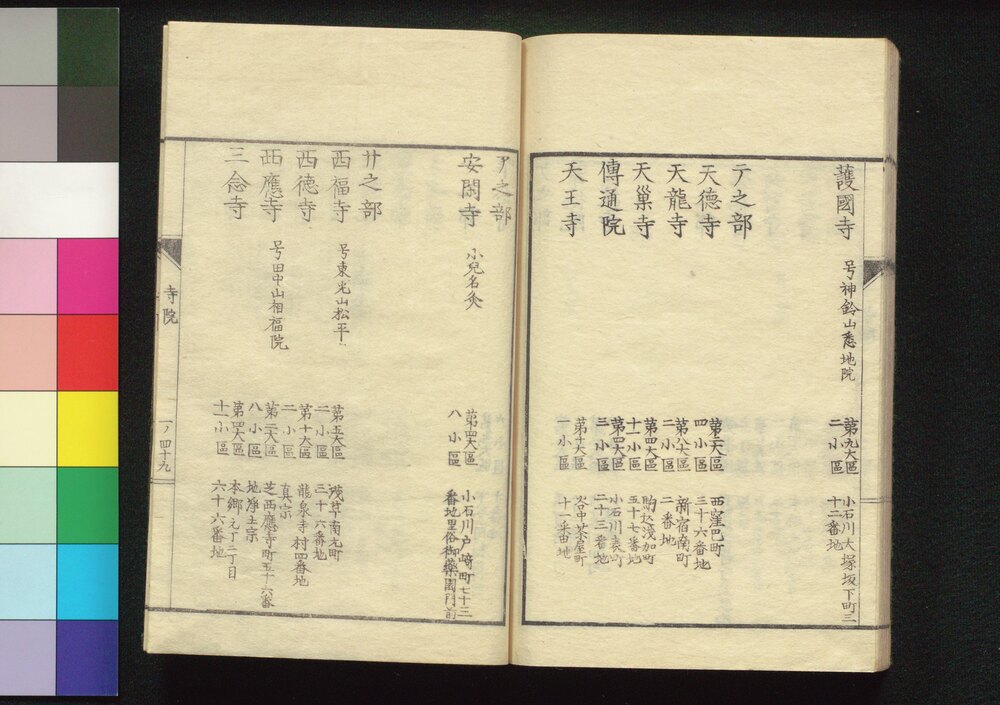 護國寺 号神鈴山悉地院 第九大區二小區 小石川大塚坂下町三十二番地
テ之部
天德寺 第二大區四小區 西窪巴町三十六番地
天龍寺 第八大區二小區 新宿南町二番地
天巢寺 第四大區十一小區 駒込浅加町五十七番地
傳通院 第四大區三小區 小石川表町二十三番地
天王寺 第十大區一小區 谷中茶屋町十一番地
ア之部
安閑寺 小兒名灸 第四大區八小區 小石川戸﨑町七十三番地里俗御藥園門前
サ之部
西福寺 号東光山松平 第五大區二小區 浅草南元町三十六番地
西德寺 第十大區二小區 龍泉寺村四番地真宗
西應寺 号田中山相福院 第二大區八小區 芝西應寺町五十六番地淨土宗
三念寺 第四大區十一小區 本郷元丁二丁目六十六番地
寺院
一ノ四十九